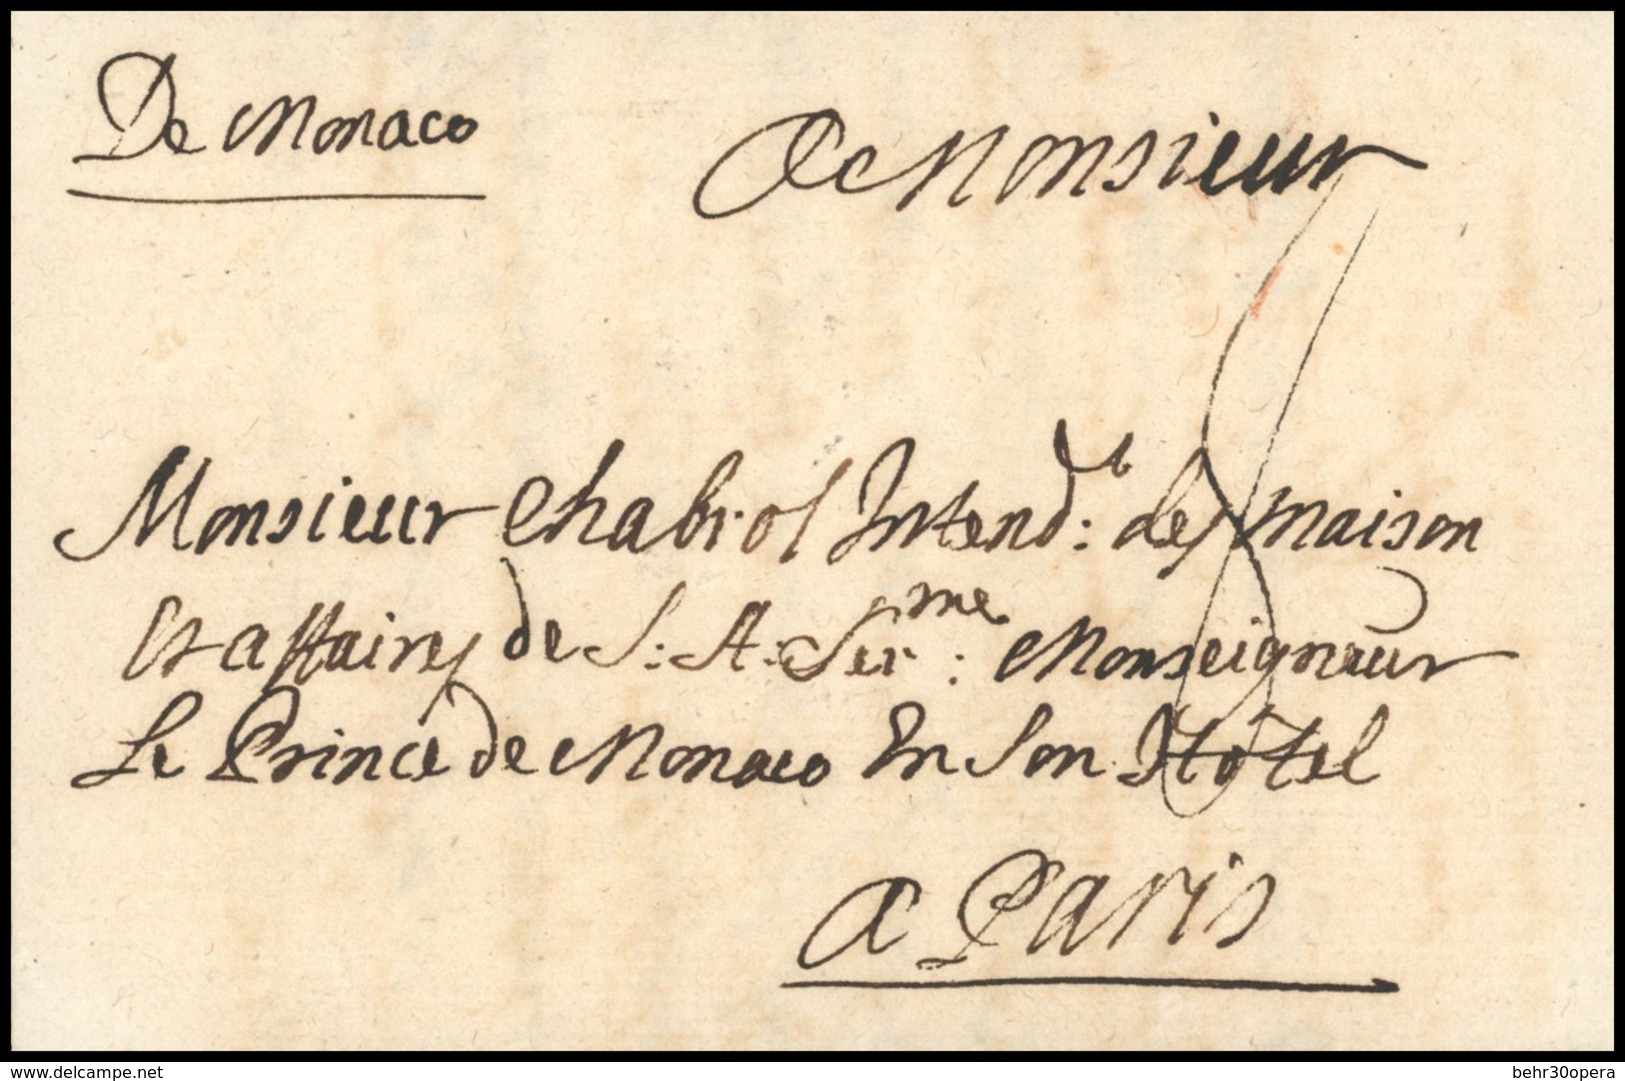 De Monaco
A Monsieur
Monsieur Chabrol Intend.t: des maison
Et affaires de S: A: Ser.me: Monseigneur
Le Prince de Monaco En Son Hotel
A Paris
www.delcampe.net
behr30opera